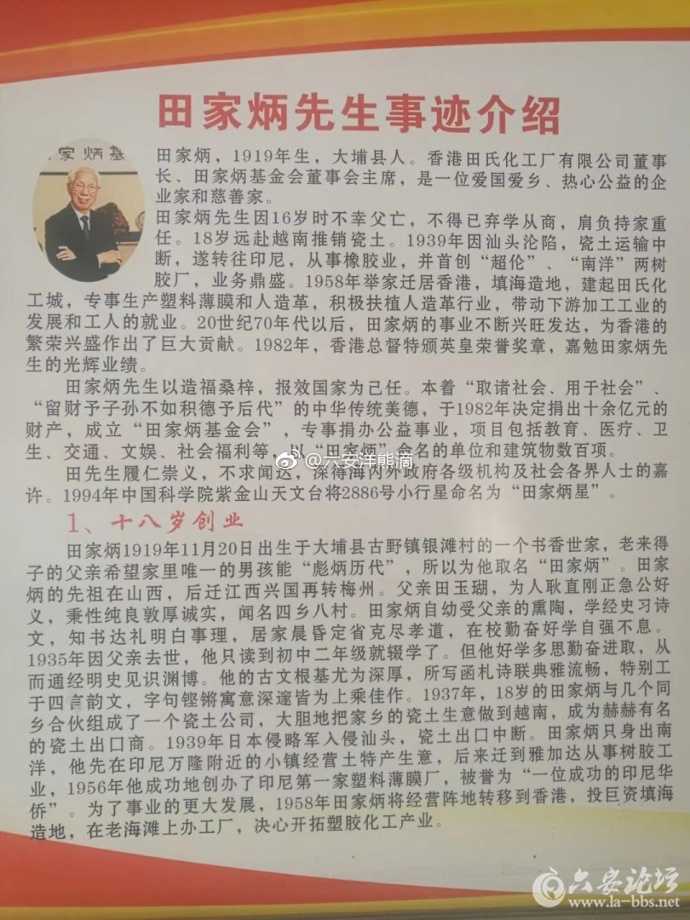 田家炳先生事迹介绍
家炳基
田家炳，1919年生，大埔县人。香港田氏化工厂有限公司董事
长、田家炳基金会董事会主席，是一位爱国爱乡、热心公益的企
业家和慈善家。
田家炳先生因16岁时不幸父亡，不得已弃学从商，肩负持家重
任。18岁远赴越南推销瓷土。1939年因汕头沦陷，瓷土运输中
断，遂转往印尼，从事橡胶业，并首创“超伦”、“南洋”两树
胶厂，业务鼎盛。1958年举家迁居香港，填海造地，建起田氏化
工城，专事生产塑料薄膜和人造革，积极扶植人造革行业，带动下游加工工业的
发展和工人的就业。20世纪70年代以后，田家炳的事业不断兴旺发达，为香港的
繁荣兴盛作出了巨大贡献。1982年，香港总督特颁英皇荣誉奖章，嘉勉田家炳先
生的光辉业绩。
田家炳先生以造福桑梓，报效国家为己任。本着“取诸社会、用于社会”、
“留财予子孙不如积德予后代”的中华传统美德，于1982年决定捐出十余亿元的
财产，成立“田家炳基金会”，专事捐办公益事业，项目包括教育、医疗、卫
生、交通、文娱、社会福利等，以“田家炳”命名的单位和建筑物数百项。
@六安洋熊滴
田先生履仁崇义，不求闻达，深得海内外政府各级机构及社会各界人士的嘉
许。1994年中国科学院紫金山天文台将2886号小行星命名为“田家炳星”。
1、十八岁创业
田家炳1919年11月20日出生于大埔县古野镇银滩村的一个书香世家，老来得
子的父亲希望家里唯一的男孩能“彪炳历代”，所以为他取名“田家炳”。田家
炳的先祖在山西，后迁江西兴国再转梅州。父亲田玉瑚，为人耿直刚正急公好
义，秉性纯良敦厚诚实，闻名四乡八村。田家炳自幼受父亲的熏陶，学经史习诗
文，知书达礼明白事理，居家晨昏定省克尽孝道，在校勤奋好学自强不息。
1935年因父亲去世，他只读到初中二年级就辍学了。但他好学多思勤奋进取，从
而通经明史见识渊博。他的古文根基尤为深厚，所写函札诗联典雅流畅，特别工
于四言韵文，字句铿锵寓意深邃皆为上乘佳作。1937年，18岁的田家炳与几个同
乡合伙组成了一个瓷土公司，大胆地把家乡的瓷土生意做到越南，成为赫赫有名
的瓷土出口商。1939年日本侵略军入侵汕头，瓷土出口中断。田家炳只身出南
洋，他先在印尼万隆附近的小镇经营土特产生意，后来迁到雅加达从事树胶工
业，1956年他成功地创办了印尼第一家塑料薄膜厂，被誉为“一位成功的印尼华
侨”。为了事业的更大发展，1958年田家炳将经营阵地转移到香港，投巨资填海
造地，在老海滩上办工厂，决心开拓塑胶化工产业。
六安论坛
www.la-bbs.net